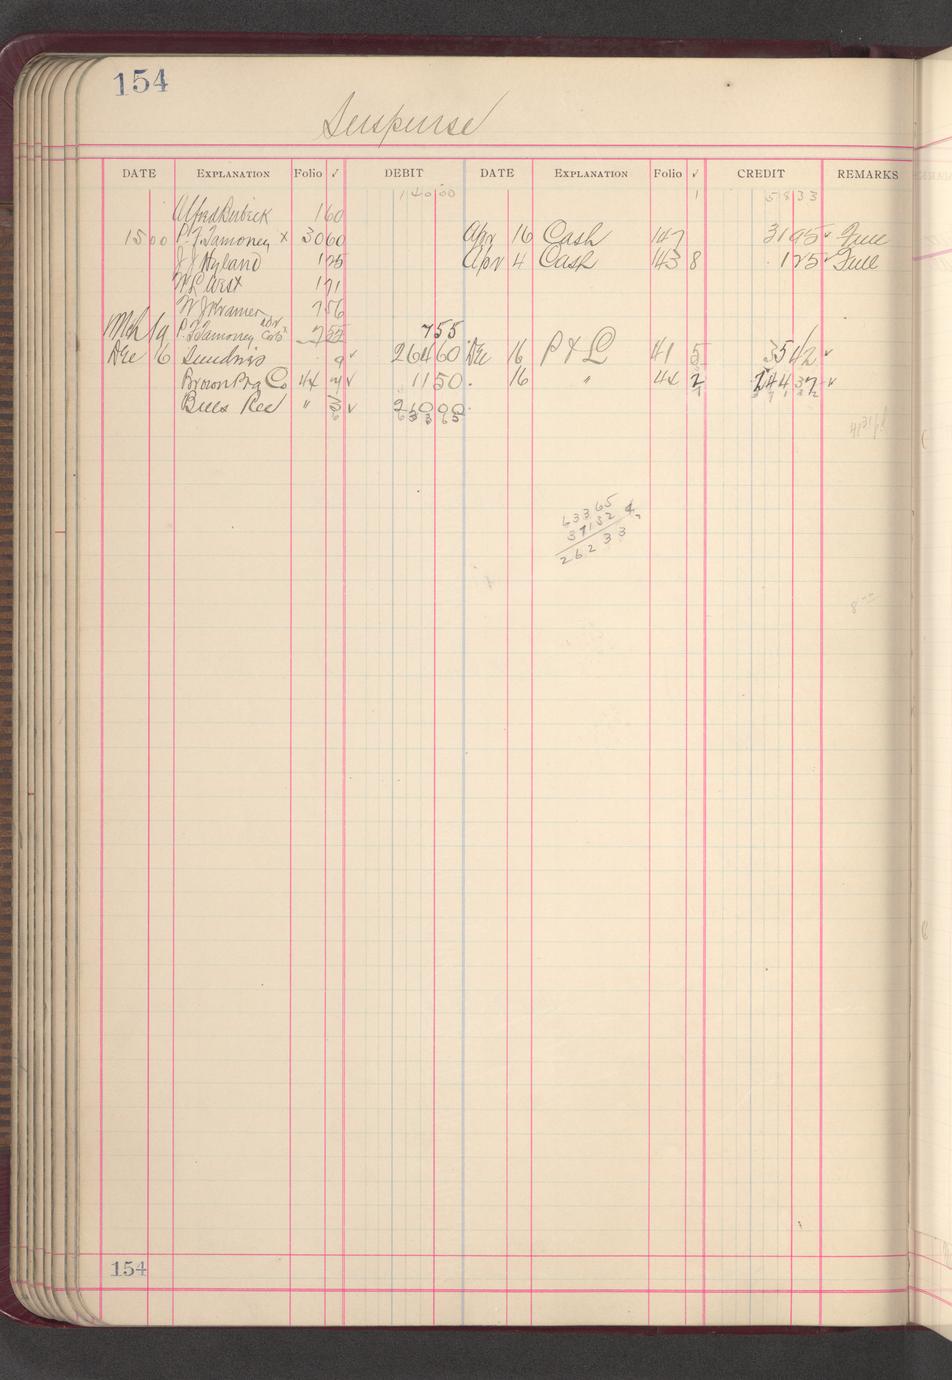 154
Suspense
DATE EXPLANATION Folio ✓ DEBIT DATE EXPLANATION Folio ✓ CREDIT REMARKS
140 00 1 58 33
Alfred 1 60
15 00 P. T. Tamoney x 30 60 Apr 16 Cash 147 31 95 ✓ Full
J J Hyland 1 25 Apr 4 Cash 143 8 1 25 ✓ Full
W R West 1 71
W J Kramer 7 56
Mch 19 P. T. Tamoney 7 55 7 55
Dec 16 Sundries 9 ✓ 264 60 Dec 16 P & L 41 5 35 42 ✓
Brown Co 44 ✓ 11 50 16 " 44 2 244 37 ✓
Bills Rec " ✓ 210 00
633 65
633 65
371 32
262 33
154